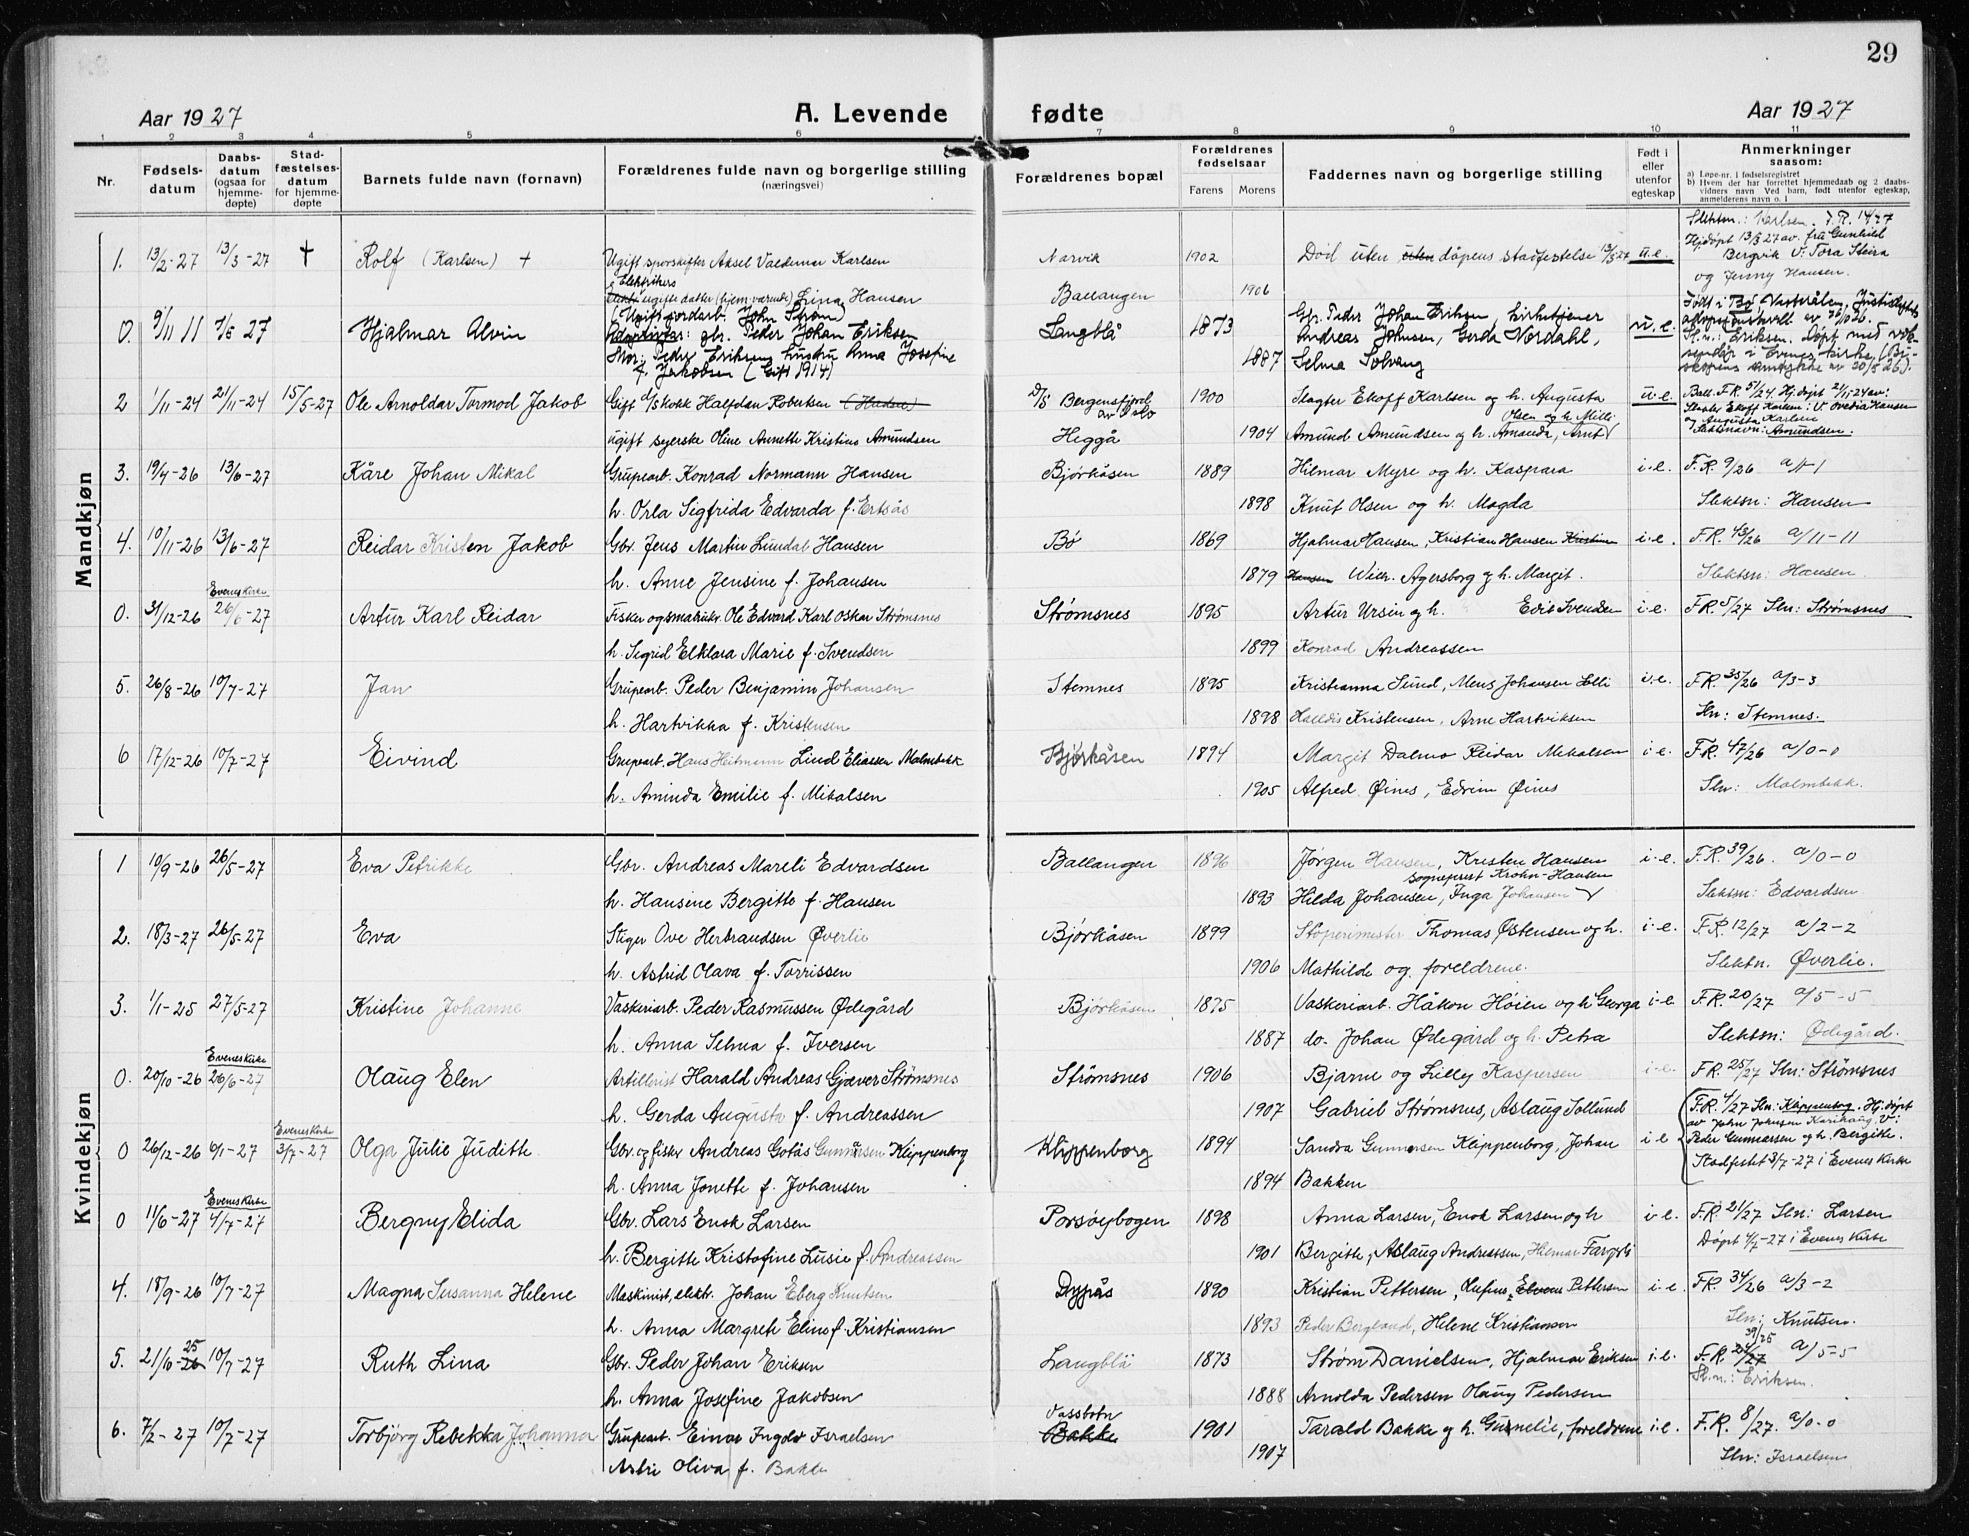 29
Aar 1927 A. Levende fødte Aar 1927
1 2 3 4 5 6 7 8 9 10 11
Nr. Fødsels-datum Daabs-datum (ogsaa for hjemme-døpte) Stad-fæstelses-datum for hjemme-døpte Barnets fulde navn (fornavn) Forældrenes fulde navn og borgerlige stilling (næringsvei) Forældrenes bopæl Forældrenes fødselsaar Farens Morens Faddernes navn og borgerlige stilling Født i eller utenfor egteskap Anmerkninger saasom:
a) Løpe-nr. i fødselsregistret
b) Hvem der har forrettet hjemmedaab og 2 daabs-vidners navn Ved barn, født utenfor egteskap, anmelderens navn o. l.
Mandkjøn
Slektsn.: Karlsen. F.R. 14/27
1. 13/2-27 13/3-27 † Rolf (Karlsen) + Ugift sporskifter Aksel Valdemar Karlsen Narvik 1902 Død uten uten dåpens stadfestelse 13/3 27 u.e. Hjdøpt 13/3 27 av fru Gunhild
Bergvik V: Tora Steira
Elektrikers
ugifte datter (hjemværende) Lina Hansen Ballangen 1906 og Jenny Hansen.
(Ugift jordarb. John Strøm)
0. 9/11 11 7/5 27 Hjalmar Alvin gbr. Peder Johan Eriksen Langblå 1873 Gbr. Peder Johan Eriksen, kirketjener Andreas Johnsen, Gerda Nordahl, u.e. Født i Bø Vesterålen,
Mor: Peder Eriksens hustru Anna Josefine 1887 Selma Solvang Sl.n.: Eriksen. Døpt
f. Jakobsen (Gift 1914) i Evenes kirke
2 1/11-24 21/11-24 15/5-27 Ole Arnoldar Tormod Jakob Gift Halfdan Robertsen D/S Bergensfjord av Oslo 1900 Slagter Ekoff Karlsen og h. Augusta u.e. Ball. F.R. 51/24. Hj.døpt 21/11-24 av:
Olsen og h. Milli Slagter Ekoff Karlsen: V. Ovedia Hansen
og Augusta Karlsen
ugift syerske Oline Annette Kristine Amundsen Heggå 1904 Amund Amundsen og h. Amanda, Arnt Slektsnavn: Amundsen.
3. 19/4-26 13/6-27 Kåre Johan Mikal Grubearb. Konrad Normann Hansen Bjørkåsen 1889 Hilmar Myre og h. Kaspara i.e. F.R. 9/26 a/1-1
h. Orla Sigfrida Edvarda f. Ertsås 1898 Knut Olsen og h. Magda Slektsn: Hansen
4. 10/11-26 13/6-27 Reidar Kristen Jakob Gbr. Jens Martin Lundal Hansen Bø 1869 Hjalmar Hansen, Kristian Hansen Kristine i.e. F.R. 43/26 a/11-11
h. Anne Jensine f. Johansen 1879 Hansen Wilh. Agersborg og h. Margit. Slektsn: Hansen
Evenes Kirke
0. 31/12-26 26/6-27 Artur Karl Reidar Fisker og småbruker Ole Edvard Karl Oskar Strømsnes Strømsnes 1895 Artur Ursin og h. Edle Svendsen i.e. F.R. 5/27 Sln: Strømsnes
h. Sigrid Elklara Marie f. Svendsen 1899 Konrad Andreassen
5. 26/8-26 10/7-27 Jan Grubearb. Peder Benjamin Johansen Stemnes 1895 Kristianna Lund, Mens Johansen Lolli i.e. F.R. 35/26 a/3-3
h. Hartvikka f. Kristensen 1898 Halldis Kristensen, Arne Hartviksen Sln: Stemnes.
6 17/12-26 10/7-27 Eivind Grubearb. Hans Heitmann Lind Eliassen Malmbekk Bjørkåsen 1894 Margit Dalmo Reidar Mikalsen i.e. F.R. 47/26 a/0-0
h. Aminda Emilie f. Mikalsen 1905 Alfred Øines, Edvin Øines Sln: Malmbekk.
Kvindekjøn
1 10/9-26 26/5-27 Eva Petrikke Gbr. Andreas Mareli Edvardsen Ballangen 1896 Jørgen Hansen, Kristen Hansen i.e. F.R. 39/26. a/0-0
sogneprest Krohn-Hansen
h. Hansine Bergitte f. Hansen 1893 Hilda Johansen, Inga Johansen Slektsn: Edvardsen
2. 18/3-27 26/5-27 Eva Stiger Ove Herbrandsen Øverlie Bjørkåsen 1899 Thomas Østensen og h. i.e. F.R. 12/27 a/2-2
h. Astrid Olava f. Torrissen 1906 Mathilde og foreldrene. Slektn. Øverlie.
3. 1/1-25 27/5-27 Kristine Johanne Vaskeriarb. Peder Rasmussen Ødegård Bjørkåsen 1875 Vaskeriarb. Håkon Høien og h Georga i.e. F.R. 20/27 a/5-5
h. Anna Selma f. Iversen 1887 do. Johan Ødegård og h. Petra Slektsn: Ødegård.
Evenes Kirke
0. 20/10-26 26/6-27 Olaug Elen Artillerist Harald Andreas Gjæver Strømsnes Strømsnes 1906 Bjarne og Lilley Kaspersen i.e. F.R. 25/27 Sln: Strømsnes
h. Gerda Augusta f. Andreassen 1907 Gabriel Strømsnes, Aslaug Sollund F.R. 4/27 Sln: Klippenborg. Hj.døpt
Evenes Kirke av John Johnsen Karihaug V:
0 26/12-26 6/1-27 3/7-27 Olga Julie Judith Gbr. og fisker Andreas Gotås Gunnarsen Klippenborg Klippenborg 1894 Sandra Gunnarsen Klippenborg, Johan i.e Peder Gunnarsen og h. Bergitte.
h. Anna Jonette f. Johansen 1894 Bakken Stadfestet 3/7-27 i Evenes Kirke
Evenes Kirke
0 11/6-27 4/7-27 Bergny Elida Gbr. Lars Enok Larsen Porsøybogen 1898 Anna Larsen, Enok Larsen og h i.e. F.R. 21/27 Sln: Larsen
h. Bergitte Kristofine Lusie f. Andreassen 1901 Bergitte, Aslaug Andreassen, Hilmar Døpt 4/7-27 i Evenes Kirke
4. 18/9-26 10/7-27 Magna Susanna Helene Maskinist, elektr. Johan Eberg Knutsen Dypås 1890 Kristian Pettersen, Rufine Pettersen i.e. F.R. 34/26 a/3-2
h. Anna Margreth Eline f. Kristiansen 1893 Peder Bergland, Helene Kristiansen Sln: Knutsen.
25 39/25
5. 21/6-26 10/7-27 Ruth Lina Gbr. Peder Johan Eriksen Langblå 1873 Strøm Danielsen, Hjalmar Eriksen i.e. F.R. 24/27 a/5-5
h. Anna Josefine Jakobsen 1888 Arnolda Pedersen Olaug Pedersen Sl.n.: Eriksen.
Vassbotn
6. 7/2-27 10/7-27 Torbjørg Rebekka Johanna Grubearb. Einar Ingolv Israelsen Bakke 1901 Tarald Bakke og h. Gunnelie, foreldrene i.e. F.R. 8/27. a/0-0
Astri Oliva f. Bakke 1907 Sln: Israelsen